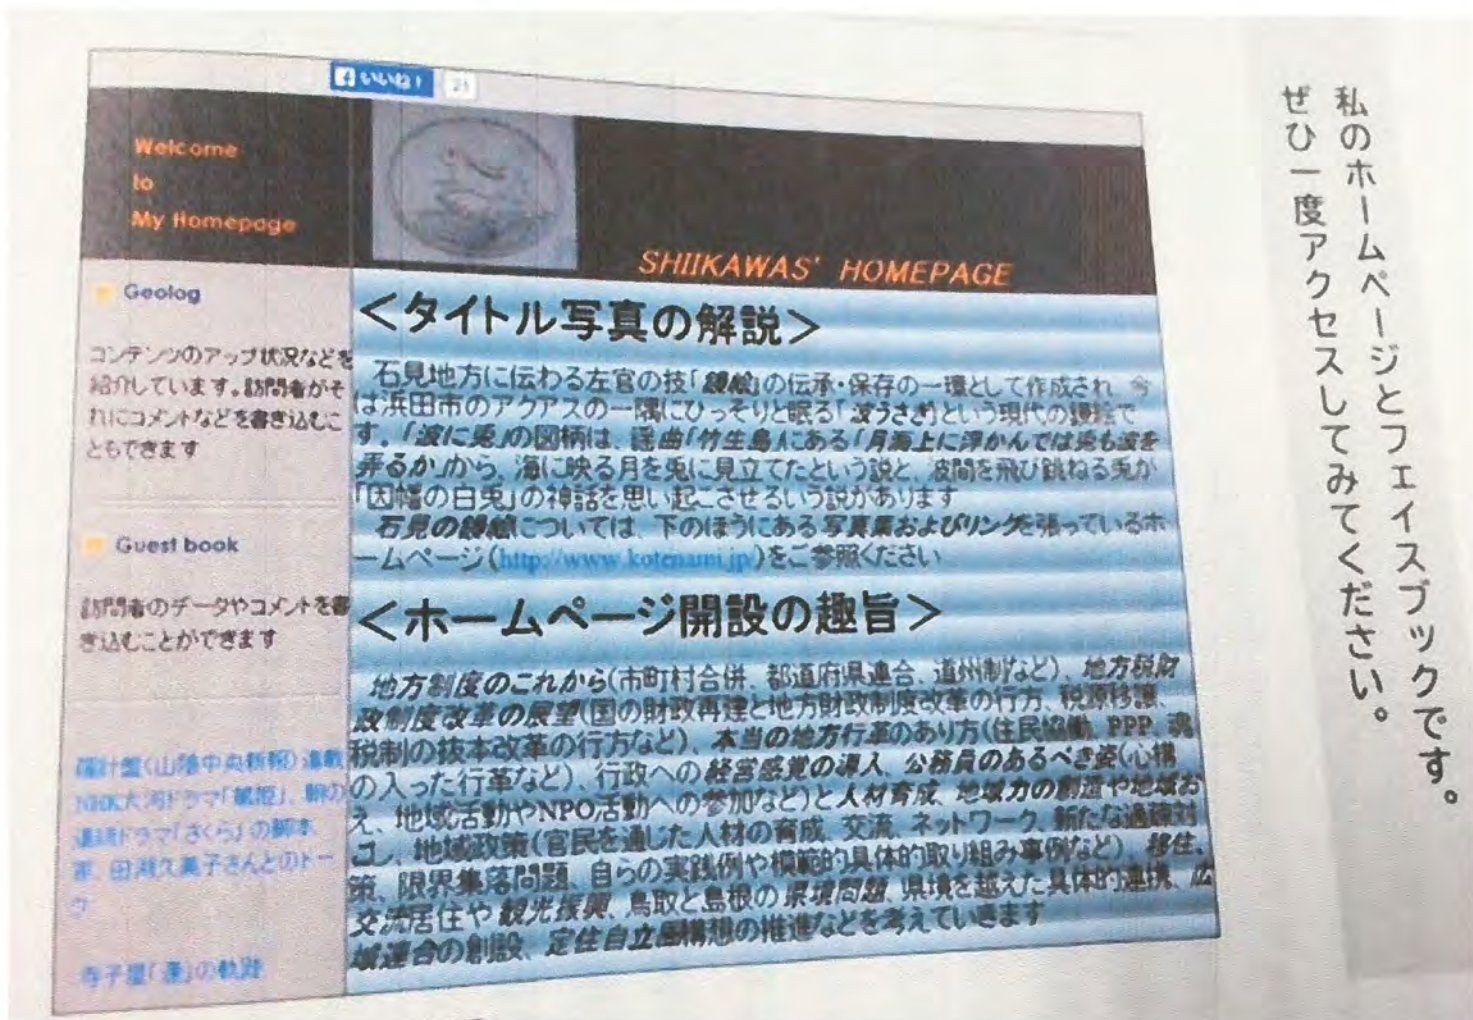 私のホームページとフェイスブックです。
ぜひ一度アクセスしてみてください。
いいね! 21
Welcome
to
My Homepage
SHIIKAWAS' HOMEPAGE
Geolog
コンテンツのアップ状況などを
紹介しています。訪問者がそ
れにコメントなどを書き込むこ
ともできます
Guest book
訪問者のデータやコメントを書
き込むことができます
羅針盤(山陰中央新報)連載
NHK大河ドラマ「篤姫」、朝の
連続ドラマ「さくら」の脚本
家、田渕久美子さんとのトー
ク
寺子屋「蓮」の軌跡
<タイトル写真の解説>
石見地方に伝わる左官の技「鏝絵」の伝承・保存の一環として作成され、今
は浜田市のアクアスの一隅にひっそりと眠る「波うさぎ」という現代の鏝絵で
す。「波に兎」の図柄は、謡曲「竹生島」にある「月海上に浮かんでは兎も波を
弄るか」から、海に映る月を兎に見立てたという説と、波間を飛び跳ねる兎が
「因幡の白兎」の神話を思い起こさせるいう説があります
石見の鏝絵については、下のほうにある写真集およびリンクを張っているホ
ームページ(http://www.kotenami.jp/)をご参照ください
<ホームページ開設の趣旨>
地方制度のこれから(市町村合併、都道府県連合、道州制など)、地方税財
政制度改革の展望(国の財政再建と地方財政制度改革の行方、税源移譲、
税制の抜本改革の行方など)、本当の地方行革のあり方(住民協働、PPP、魂
の入った行革など)、行政への経営感覚の導入、公務員のあるべき姿(心構
え、地域活動やNPO活動への参加など)と人材育成、地域力の創造や地域お
こし、地域政策(官民を通じた人材の育成、交流、ネットワーク、新たな過疎対
策、限界集落問題、自らの実践例や模範的具体的取り組み事例など)、移住、
交流居住や観光振興、鳥取と島根の県境問題、県境を越えた具体的連携、広
域連合の創設、定住自立圏構想の推進などを考えていきます